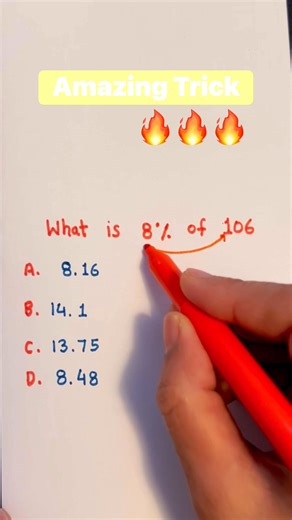 Amazing Trick
🔥🔥🔥
What is 8% of 106
A. 8.16
B. 14.1
C. 13.75
D. 8.48